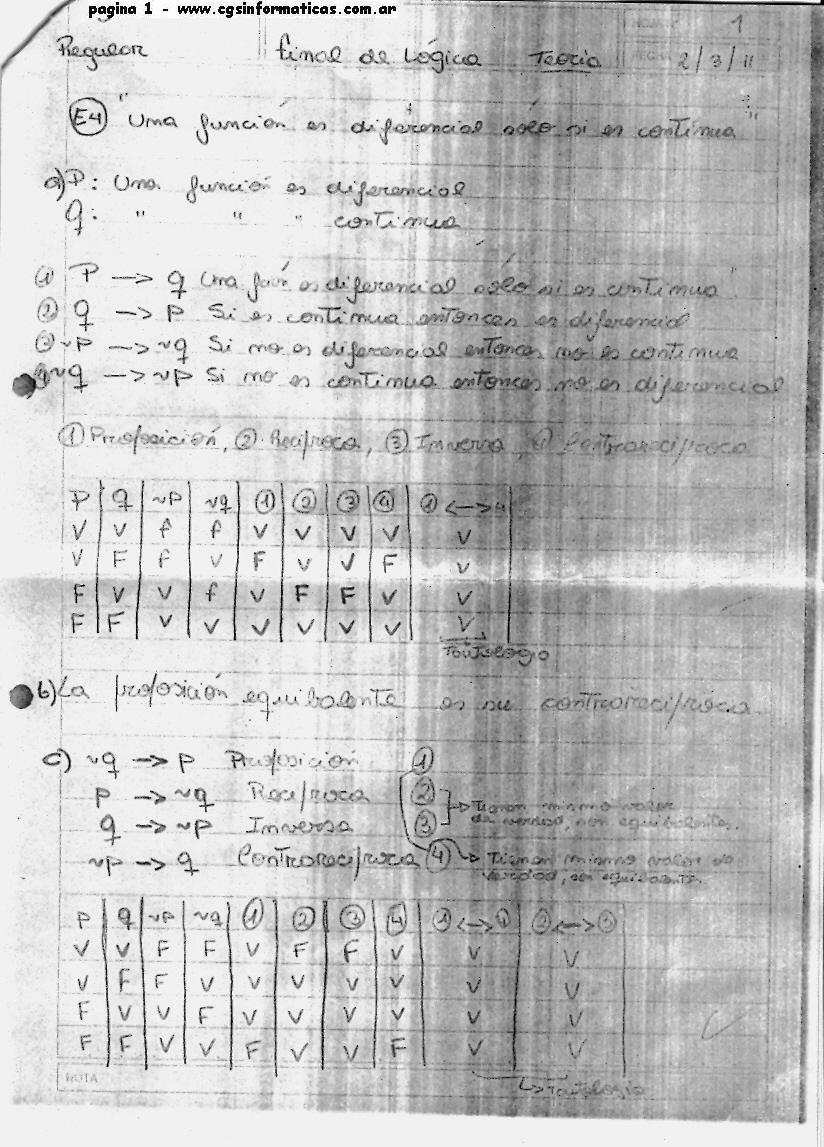 pagina 1 - www.cgsinformaticas.com.ar
1
Regular final de Lógica Teoria 2/3/11
E4 "Una función es diferencial sólo si es continua"
a) P: Una función es diferencial
q: " " " continua
① P -> q Una fución es diferencial sólo si es continua
② q -> p Si es continua entonces es diferencial
③ ~p -> ~q Si no es diferencial entonces no es continua
④ ~q -> ~p Si no es continua entonces no es diferencial
① Proposición, ② Reciproca, ③ Inversa, ④ Contrareciproca
P q ~p ~q ① ② ③ ④ ① <-> 4
V V f f V V V V V
V F f V F V V F V
F V V f V F F V V
F F V V V V V V V
Tautologia
b) La proposición equibalente es su contrareciproca
c) ~q -> p Proposición ①
p -> ~q Reciproca ②
q -> ~p Inversa ③
-> Tienen mismo valor
de verdad, son equibalentes.
~p -> q Contrareciproca ④ -> Tienen mismo valor de
verdad, son equibalente
p q ~p ~q ① ② ③ 4 ① <-> ④ ② <-> ③
V V F F V F F V V V
V F F V V V V V V V
F V V F V V V V V V
F F V V F V V F V V
-> Tautologia
NOTA